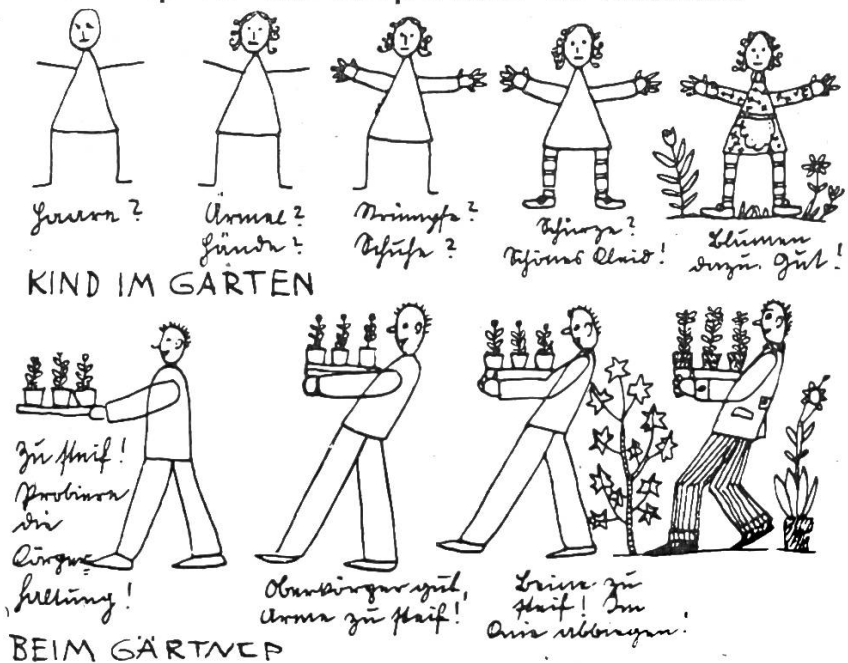 Haare?
Ärmel?
Hände?
Strümpfe?
Schuhe?
Schürze?
Schönes Kleid!
Blumen
dazu. Gut!
KIND IM GARTEN
Zu steif!
Probiere
die
Körper=
haltung!
Oberkörper gut,
Arme zu steif!
Beine zu
steif! Im
Knie abbiegen!
BEIM GÄRTNER